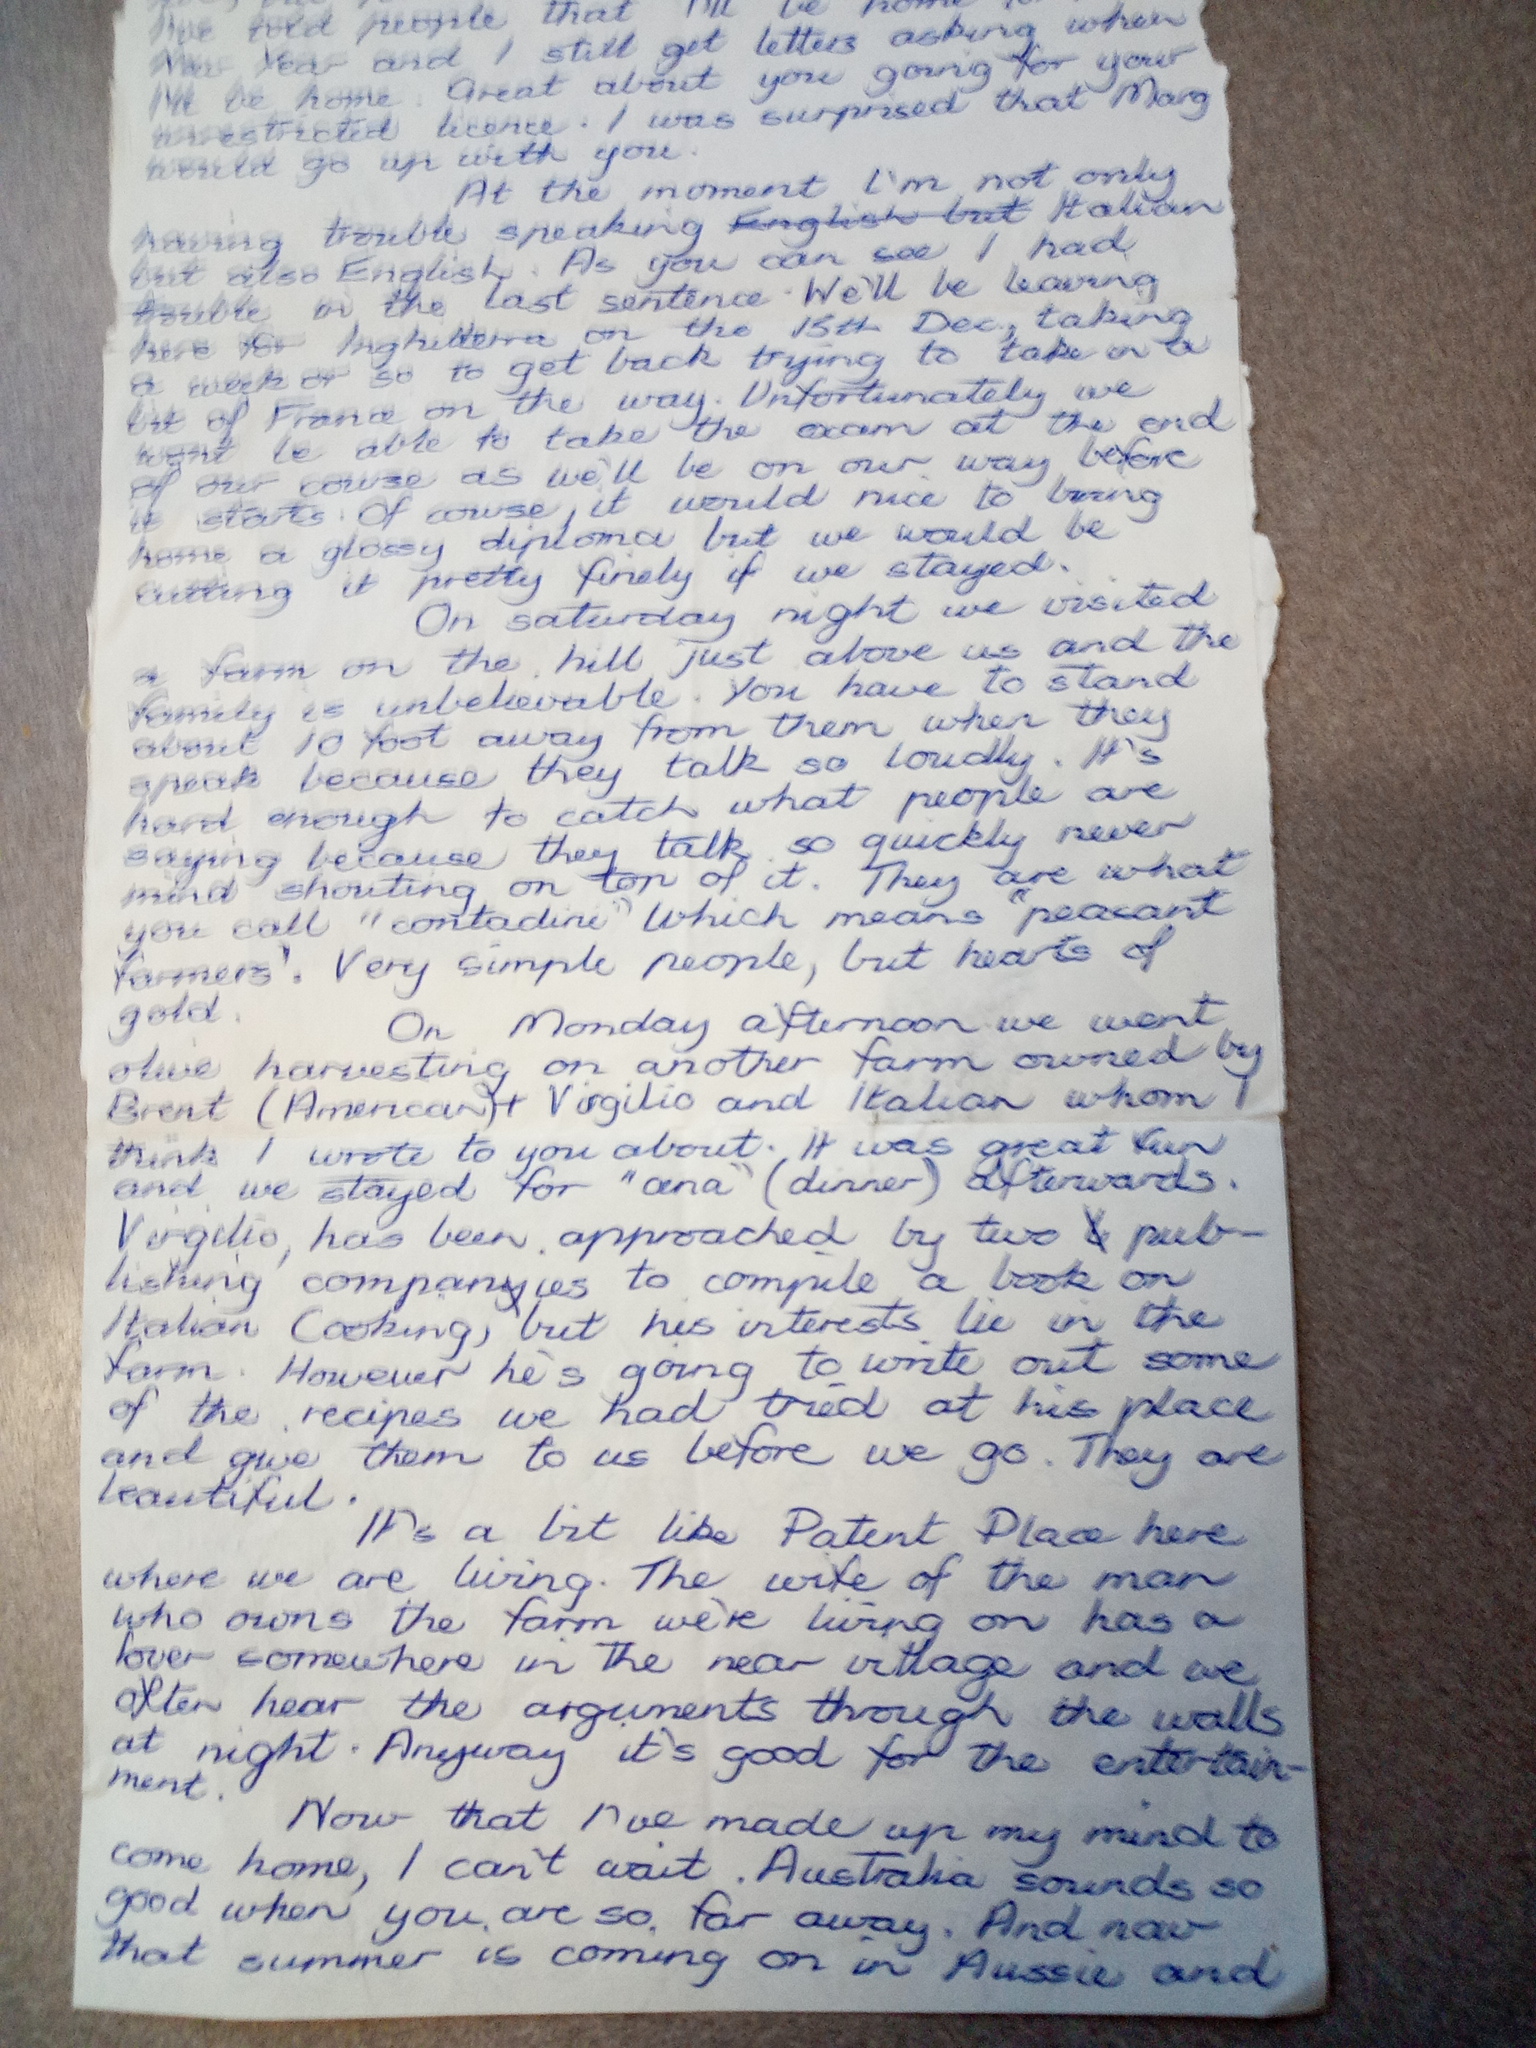 I've told people that I'll be home
New Year and I still get letters asking when
I'll be home. Great about you going for your
unrestricted licence. I was surprised that Marg
would go up with you.
At the moment I'm not only
having trouble speaking English but Italian
but also English. As you can see I had
trouble in the last sentence. We'll be leaving
here for Inghilterra on the 15th Dec., taking
a week or so to get back trying to take in a
bit of France on the way. Unfortunately we
wont be able to take the exam at the end
of our course as we'll be on our way before
it starts. Of course, it would nice to bring
home a glossy diploma but we would be
cutting it pretty finely if we stayed.
On saturday night we visited
a farm on the hill just above us and the
family is unbelievable. You have to stand
about 10 foot away from them when they
speak because they talk so loudly. It's
hard enough to catch what people are
saying because they talk so quickly never
mind shouting on top of it. They are what
you call "contadini" which means "peasant
farmers'. Very simple people, but hearts of
gold.
On Monday afternoon we went
olive harvesting on another farm owned by
Brent (American)+ Virgilio and Italian whom I
think I wrote to you about. It was great fun
and we stayed for "cena" (dinner) afterwards.
Virgilio, has been approached by two pub-
lishing companies to compile a book on
Italian Cooking, but his interests lie in the
farm. However he's going to write out some
of the recipes we had tried at his place
and give them to us before we go. They are
beautiful.
It's a bit like Patent Place here
where we are living. The wife of the man
who owns the farm we're living on has a
lover somewhere in the near village and we
often hear the arguments through the walls
at night. Anyway it's good for the entertain-
ment.
Now that I've made up my mind to
come home, I can't wait. Australia sounds so
good when you are so far away. And now
that summer is coming on in Aussie and